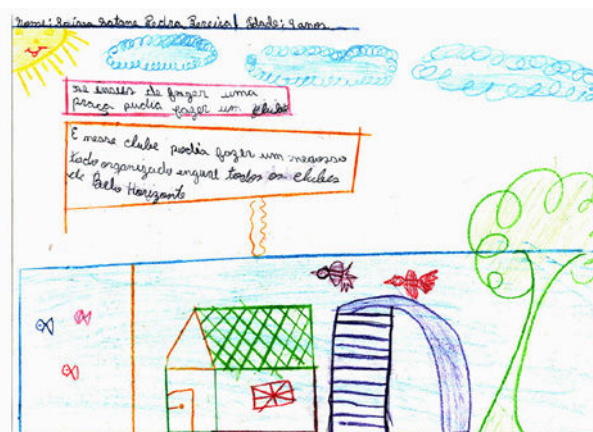 Nome: Satane Pedra Pereira Idade: 9 anos
se invés de fazer uma
praça pudia fazer um clube
E nesse clube podia fazer um negosso
todo organizado engual todos os clubes
de Belo Horizonte